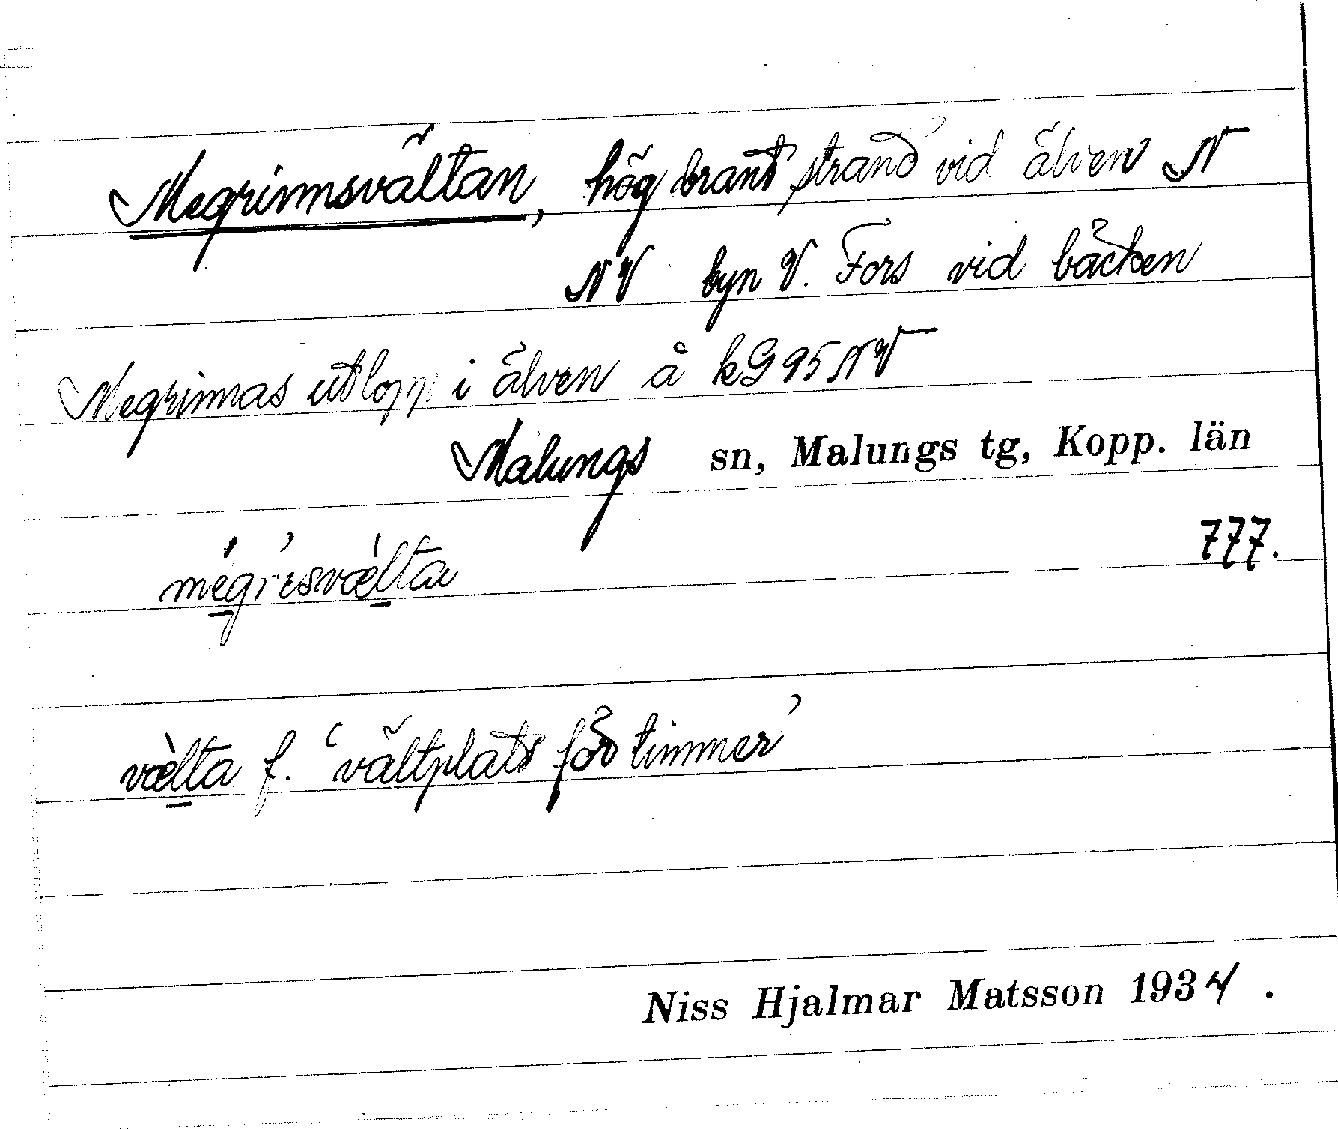 Megrimsvältan, hög brant strand vid älven N
NV byn V. Fors vid bäcken
Megrinnas utlopp i älven å kG 95 NV
Malungs sn, Malungs tg, Kopp. län
777.
mégrèsvælta
vælta f. 'vältplats för timmer'
Niss Hjalmar Matsson 1934.